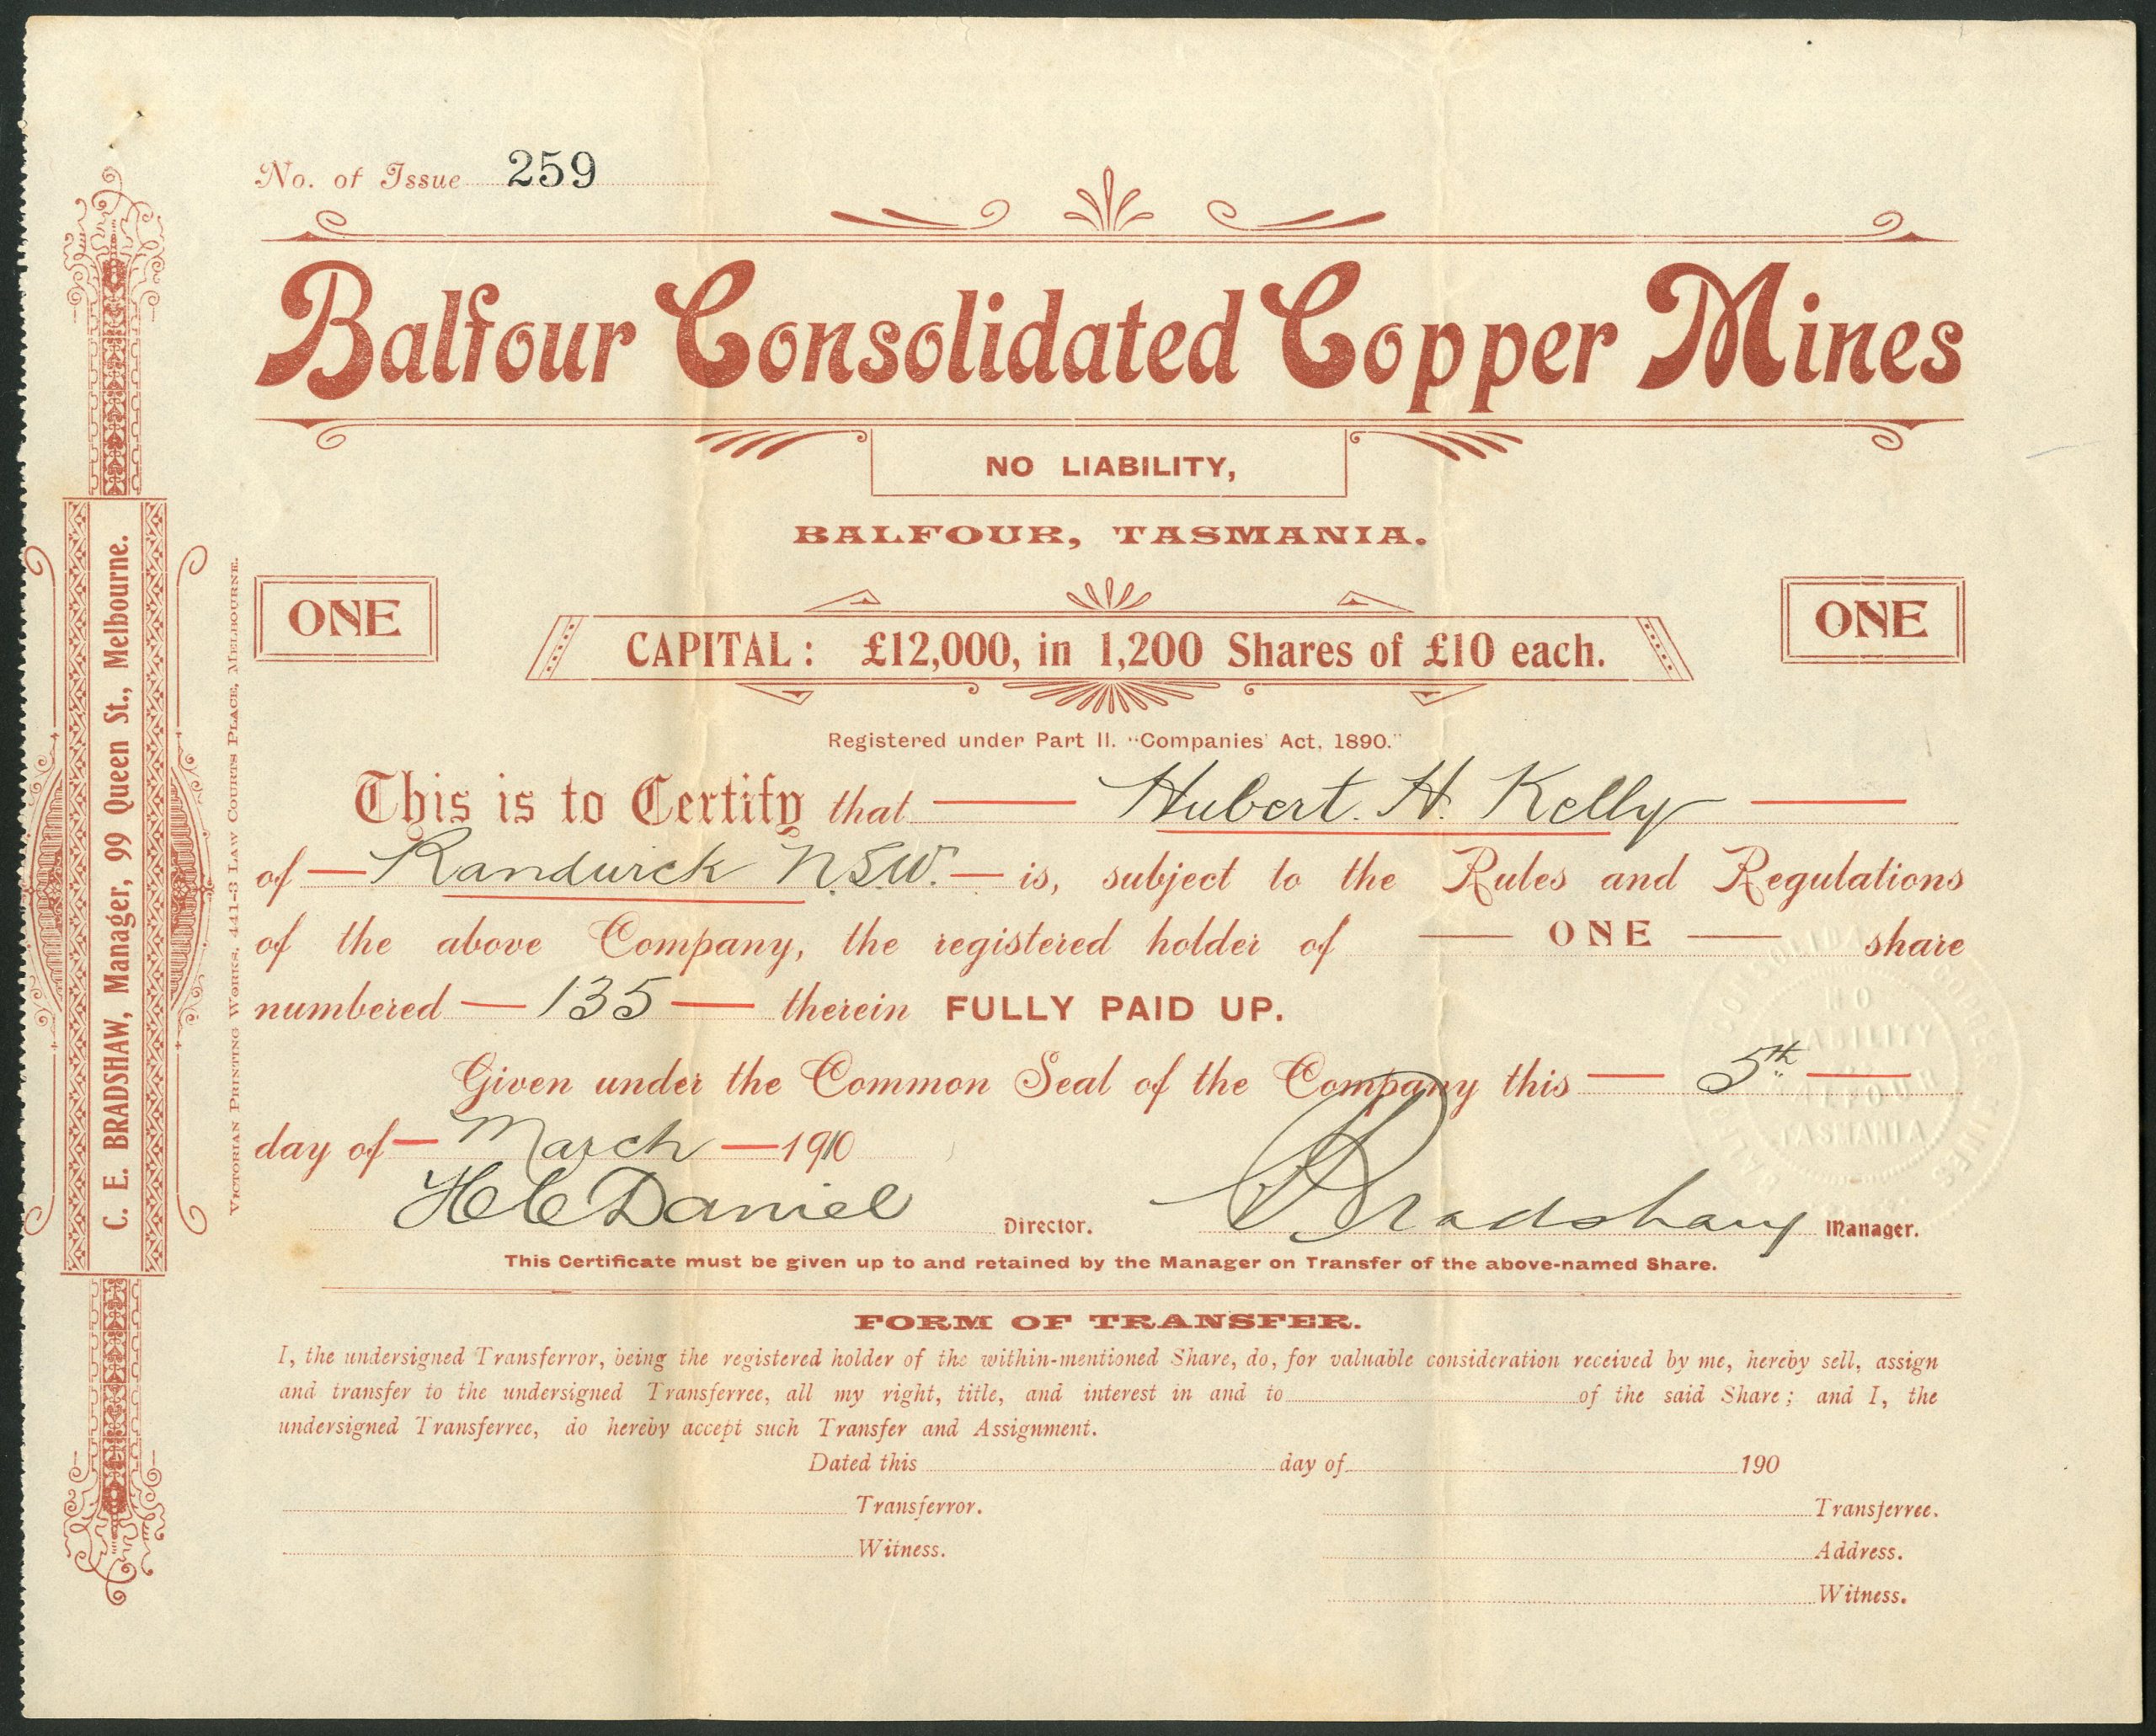 No. of Issue 259
Balfour Consolidated Copper Mines
NO LIABILITY,
BALFOUR, TASMANIA.
ONE
CAPITAL: £12,000, in 1,200 Shares of £10 each.
ONE
Registered under Part II. "Companies' Act, 1890."
This is to Certify that Hubert. H. Kelly
of Randwick N.S.W. is, subject to the Rules and Regulations
of the above Company, the registered holder of ONE share
numbered 135 therein FULLY PAID UP.
Given under the Common Seal of the Company this 5th
day of March 1910
H C Daniel Director. Bradshaw Manager.
This Certificate must be given up to and retained by the Manager on Transfer of the above-named Share.
FORM OF TRANSFER.
I, the undersigned Transferror, being the registered holder of the within-mentioned Share, do, for valuable consideration received by me, hereby sell, assign
and transfer to the undersigned Transferree, all my right, title, and interest in and to of the said Share; and I, the
undersigned Transferree, do hereby accept such Transfer and Assignment.
Dated this day of 190
Transferror. Transferree.
Witness. Address.
Witness.
C. E. BRADSHAW, Manager, 99 Queen St., Melbourne.
VICTORIAN PRINTING WORKS, 441-3 LAW COURTS PLACE, MELBOURNE.
CONSOLIDATED COPPER MINES
NO
LIABILITY
BALFOUR
TASMANIA